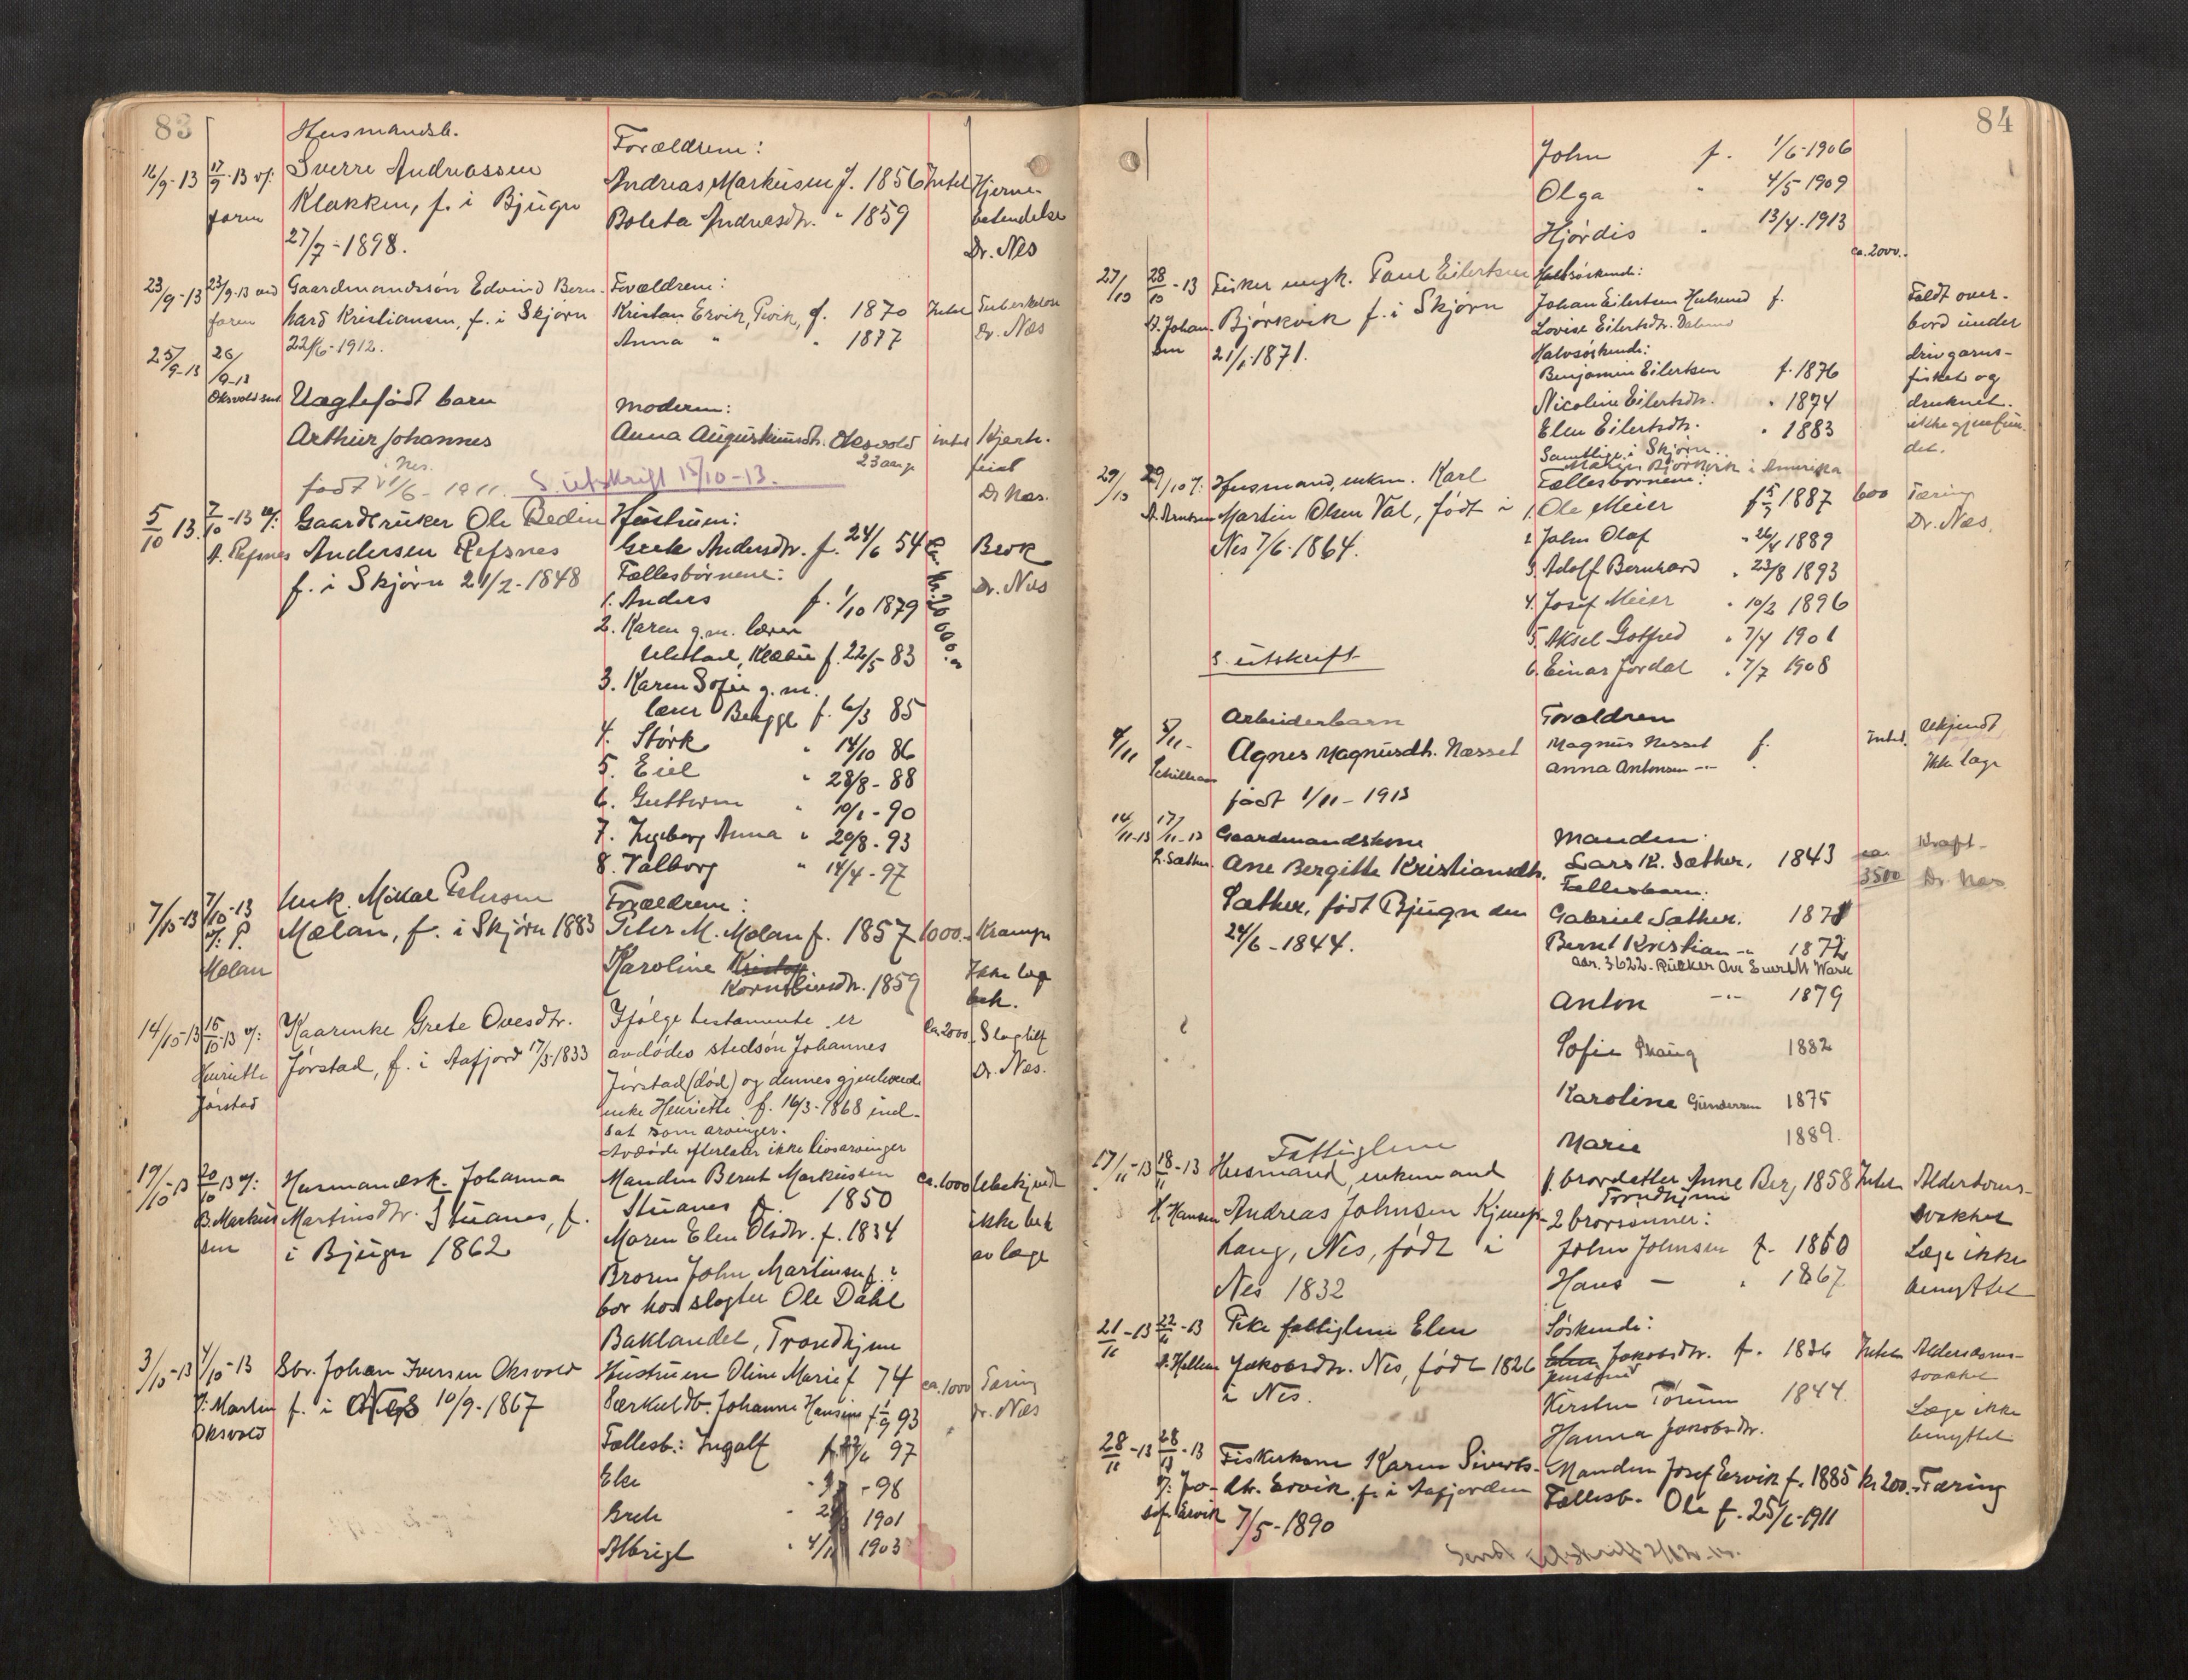 83
Husmandsb.
16/9-13 17/9-13 v/: Sverre Andreassen
faren Klakken, f. i Bjugn
27/7-1898.
Forældrene:
Andreas Markusen f. 1856 Intet Hjerne-
Boleta Andreasdtr. " 1859 betendelse
Dr. Nes
23/9-13 23/9-13 ved Gaardmandssøn Edvind Bern-
faren hard Kristiansen, f. i Skjørn
22/6-1912.
Forældrene:
Kristian Ervik, f. 1870 Intet Tuberkulose
Anna " " 1877 Dr. Næs
25/9-13 26/9-13
Oksvold
Uægtefødt barn
Arthur Johannes
i Nes.
født 21/6-1911. S. utskrift 15/10-13.
Moderen:
Anna Augustinusdtr. Oksvold intet Hjerte-
23 aar feil
Dr Næs.
5/10 13. 7/10-13 v/: Gaardbruker Ole Bedin
A. Refsnes Andersen Refsnes
f. i Skjørn 21/2-1848
Hustruen:
Grete Andersdtr. f. 24/6 54 Ca. kr. 20000.- Brok
Fællesbørnene: Dr. Nes
1. Anders f. 1/10 1879
2. Karen g.m. lærer
Ulstad, Klæbu f. 22/5 83
3. Karen Sofie g.m.
lærer f. 6/3 85
4. Størk " 14/10 86
5. Eiel " 28/8-88
6. Guttorm " 10/1-90
7. Ingeborg Anna " 20/8-93
8. Valborg " 14/4-97
7/10-13 7/10-13 Unk. Mikal Petersen
v/: P. Mælan, f. i Skjørn 1883
Mælan
Forældrene:
Peter M. Mælan f. 1857 1000.- Krampe
Karoline Kristof Ikke læge
Korneliusdtr. 1859 beh.
14/10-13 15/10-13 v/: Kaarinke Grete Ovesdtr.
Henriette Jørstad, f. i Aafjord 17/3-1833
Jørstad
Ifølge testamente er ca. 2000 Slagtilf
avdødes stedsøn Johannes
Jørstad (død) og dennes gjenlevende Dr. Næs.
enke Henriette f. 16/3-1868 ind-
sat som arvinger.
Avdøde efterlater ikke livsarvinger
19/10-13 20/10-13 v/: Husmandsk. Johanna
B. Markus Martinsdtr. Stuanes, f.
sen i Bjugn 1862
Manden Bernt Markussen ca. 1000 Ubekjendt
Stuanes f. 1850 ikke beh
Maren Elen Olsdtr. f. 1834 av læge
Broren John Martinsen f. ?
bor hos slagter Ole Dahl
Baklandet, Trondhjem
3/10-13 4/10-13 Sbr. Johan Iversen Oksvold
v/: Martin f. i Nes 10/9-1867
Oksvold
Hustruen Oline Marie f 74 ca. 1000 Tæring
Særkuldb. Johanne Hansine f 1/9 93 Dr. Næs
Fællesb.: Ingolf 97
98
1901
Albrigt 1903
84
John f. 1/6-1906
Olga " 4/5-1909
Hjørdis " 13/4-1913
27/10 28/10-13 Fisker ungk. Paul Eilertsen
B. Johan- Bjørkvik f. i Skjørn
sen 21/1-1871.
Helsøskende: ca. 2000.-
Johan Eilertsen f. Faldt over-
Lovise Eilertsdtr. bord under
Halvsøskende: drivgarns-
Benjamin Eilertsen f. 1876 fisket og
Nicoline Eilertsdtr. " 1874 druknet.
Elen Eilertsdtr. " 1883 ikke gjenfun-
Samtlige i Skjørn. det.
Bjørkvik i Amerika
29/10 29/10 v: Husmand, enkm. Karl
A. Arntsen Martin Olsen Val, født i
Nes 7/6-1864.
Fællesbørnene:
1. Ole Meier f 1887 600 Tæring
2 John Olaf " 26/4 1889 Dr. Næs.
3. Adolf Bernhard " 23/8 1893
4. Josef Meier " 10/2 1896
5. Aksel Gotfred " 7/4 1901
6. Einar Jordal " 7/7 1908
S. utskrift
4/11 5/11- Arbeiderbarn
Agnes Magnusdtr. Næsset
født 1/11-1913
Forældren
Magnus Nesset f. Intet. Ukjendt
Anna Antonsen -"- " Ikke læge
14/11-13 17/11-13 Gaardmandskone
L. Sæther. Ane Bergitte Kristiansdtr.
Sæther, født Bjugn den
24/6-1844.
Manden
Lars K. Sæther. 1843 ca. Kræft-
Fællesbarn: 3500 Dr. Næs
Gabriel Sæther. 1871
Bernt Kristian -"- 1872
Anton -"- 1879
Sofie 1882
Karoline Gundersen 1875
Marie 1889.
17/11-13 18/11-13 Fattiglem
Husmand, enkemand
H. Hansen Andreas Johnsen Kjemp-
haug, Nes, født i
Nes 1832
1. brordatter Anne Berg 1858 Intet Alderdoms-
Trondhjem svakhet
2 brorsønner:
John Johnsen f. 1860 Læge ikke
Hans — " 1867 benyttet
21/11-13 22/11-13 Pike fattiglem Elen
A. Hellem Jakobsdtr. Nes, født 1826
i Nes.
Søskende:
Elen Jakobsdtr. f. 1836 Intet Alderdoms-
svakhet
Kirsten Tørum 1844. Læge ikke
Hanna Jakobsdtr. benyttet
28/11-13 28/11-13 Fiskerkone Karen Siverts-
v/: Jo- dtr. Ervik, f. i Aafjorden
sef Ervik 7/5-1890
Manden Josef Ervik f. 1885 kr 200.- Tæring
Fællesb. Ole f. 25/6-1911